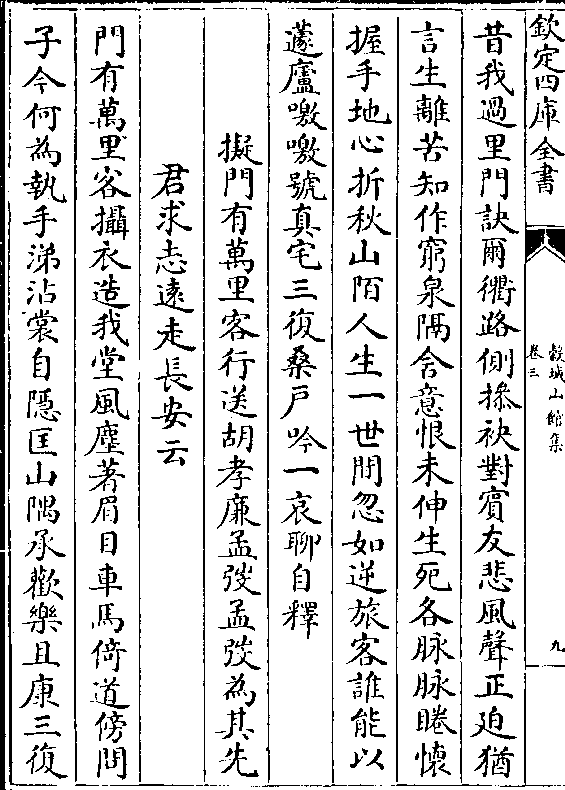 欽定四庫全書
穀城山館集
卷三
九
昔我過里門訣爾衢路側摻袂對賓友悲風聲正廹猶
言生離苦知作窮泉隔含意恨未伸生死各脉脉睠懷
握手地心折秋山陌人生一世間忽如逆旅客誰能以
蘧廬噭噭號真宅三復桑戶吟一哀聊自釋
擬門有萬里客行送胡孝廉孟弢孟弢為其先
君求志遠走長安云
門有萬里客攝衣造我堂風塵著眉目車馬倚道傍問
子今何為執手涕沾裳自隱匡山隅承歡樂且康三復